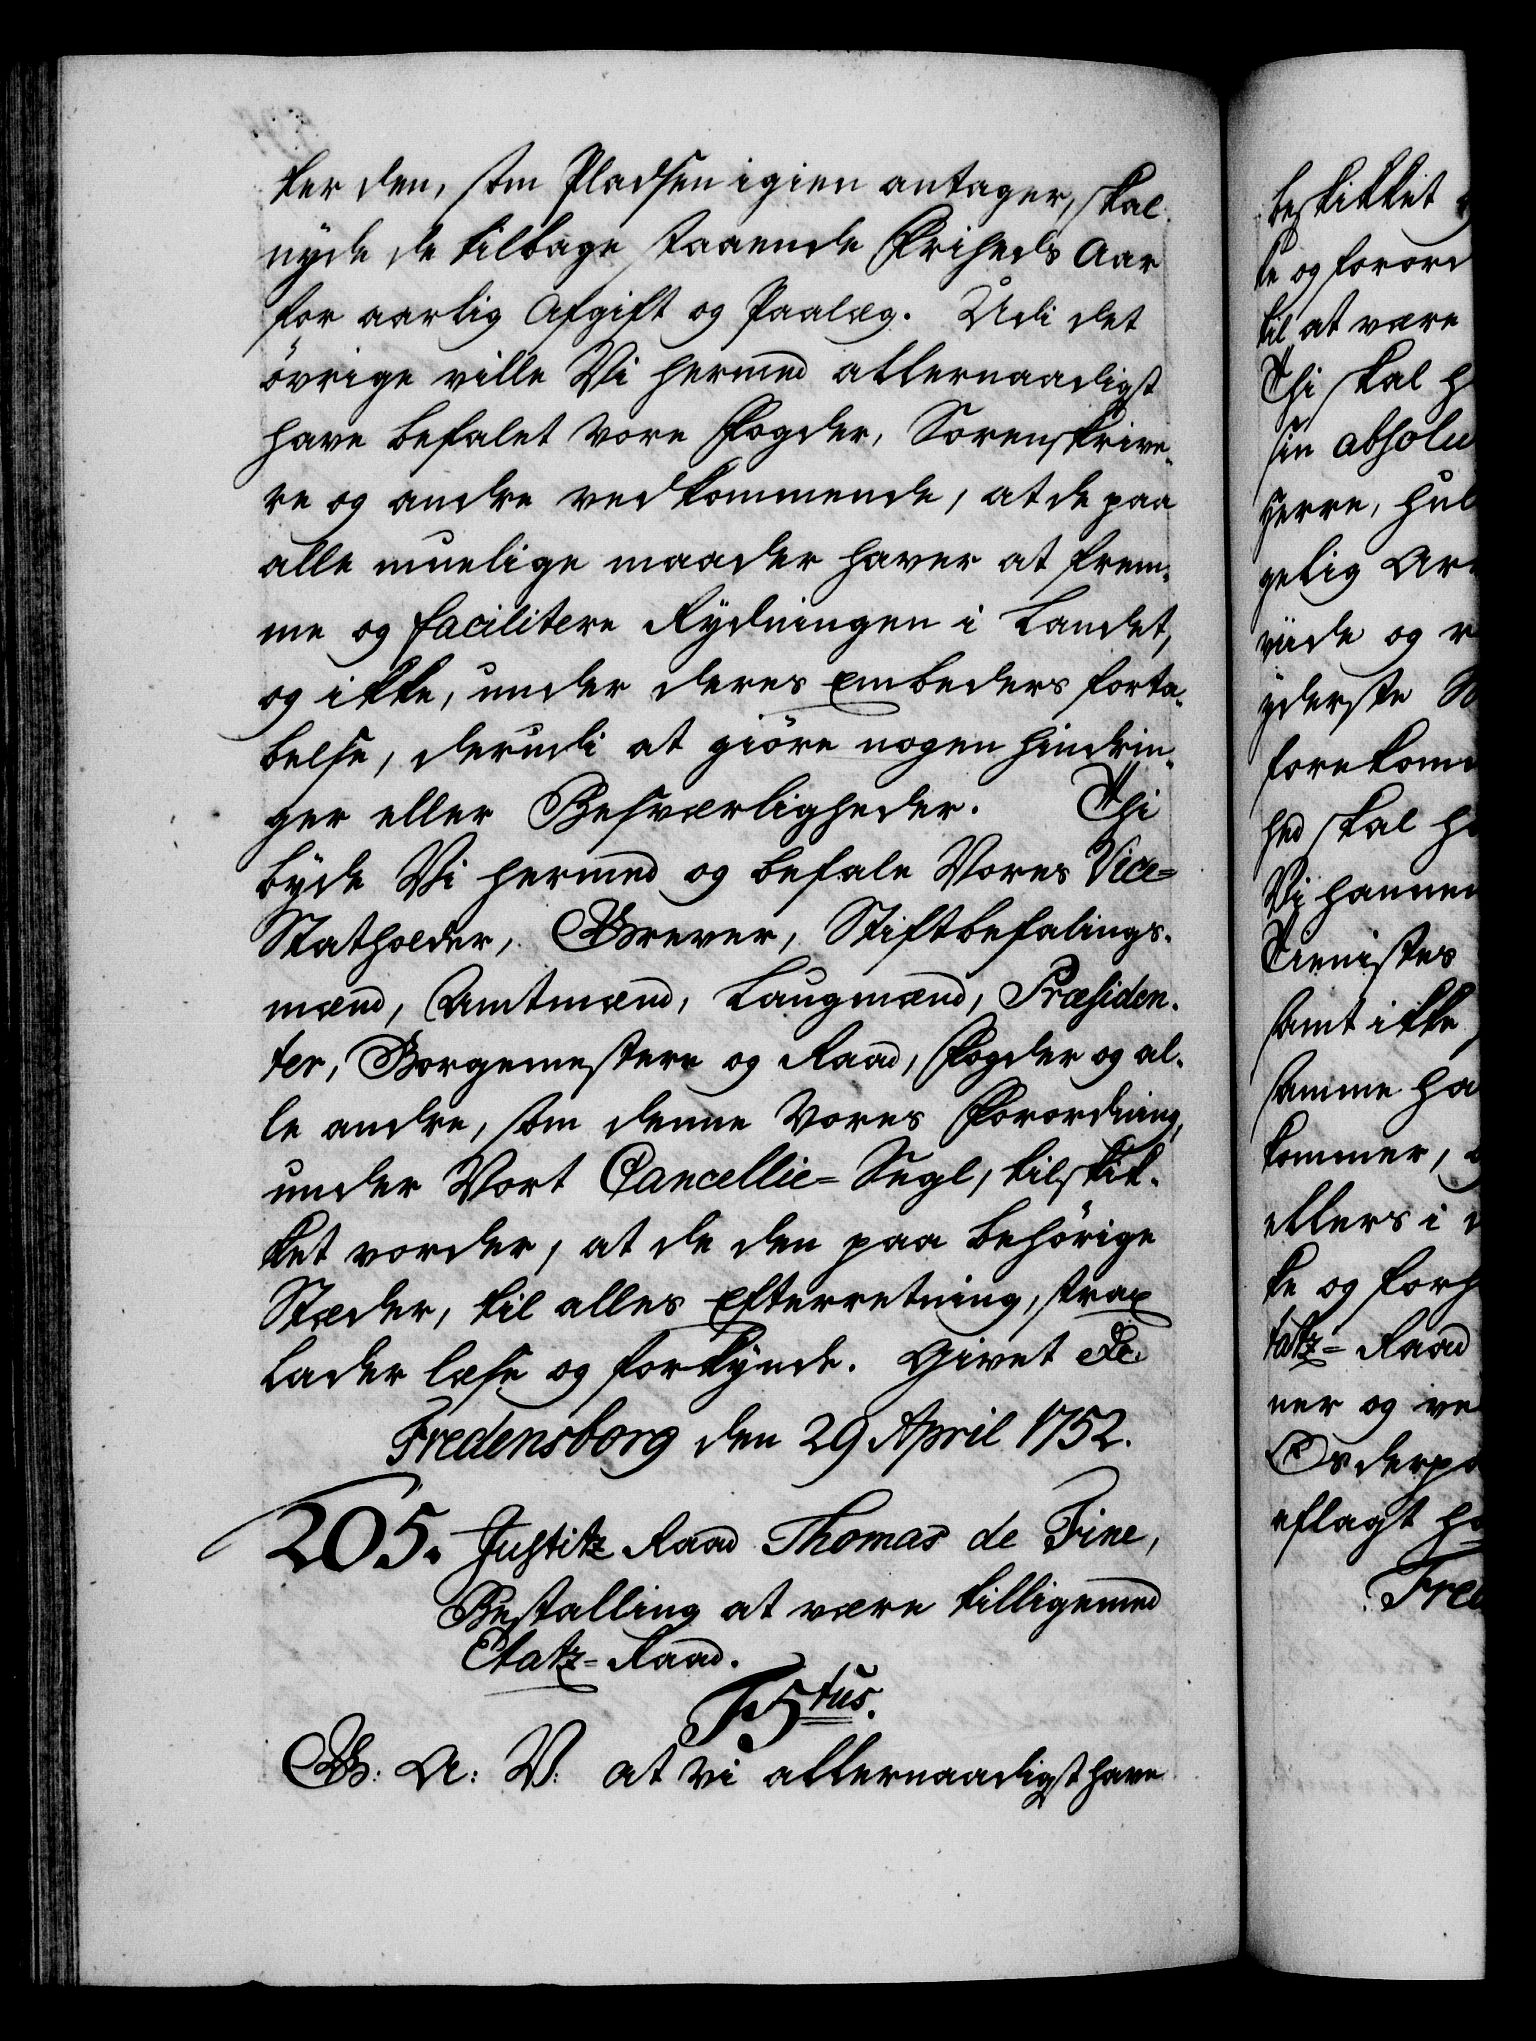 ter den, som Pladsen igien antager, skal
nyde de tilbage staaende Friheds Aar
for aarlig Afgift og Paalæg. Udi det
övrige ville Vi hermed allernaadigst
have befalet vore Fogder, Sorenskrive-
re og andre vedkommende, at de paa
alle muelige maader haver at frem-
me og facilitere Rydningen i Landet,
og ikke, under deres Embeders forta-
belse, derudi at giöre nogen hindrin-
ger eller Besværligheder. Thi
byde Vi hermed og befale Vores Vice-
Statholder, Grever, Stiftbefalings-
mænd, Amtmænd, Laugmænd, Præsiden-
ter, Borgemestere og Raad, Fogder og al-
le andre, som denne Vores Forordning,
under Vort Cancellie-Segl, tilskik-
ket vorder, at de den paa behörige
Stæder, til alles Efterretning, strax
lader læse og forkynde. Givet &c.
Fredensborg den 29 April 1752.
205. Justitz Raad Thomas de Fine,
Bestalling at være tilligemed
Etatz-Raad.
F5tus.
G: A: V: at Vi allernaadigst have
beskikket
te og forord
til at være
Thi skal h
sin absolu
Herre, hul
gelig Ar
viide og r
yderste
forekom
hed skal h
Vi hannem
Tienistes
samt ikke
samme ha
kommer,
ellers i
te og forh
tatz-Raad
ner og ve
Orderpa
eflagt ha
Fre